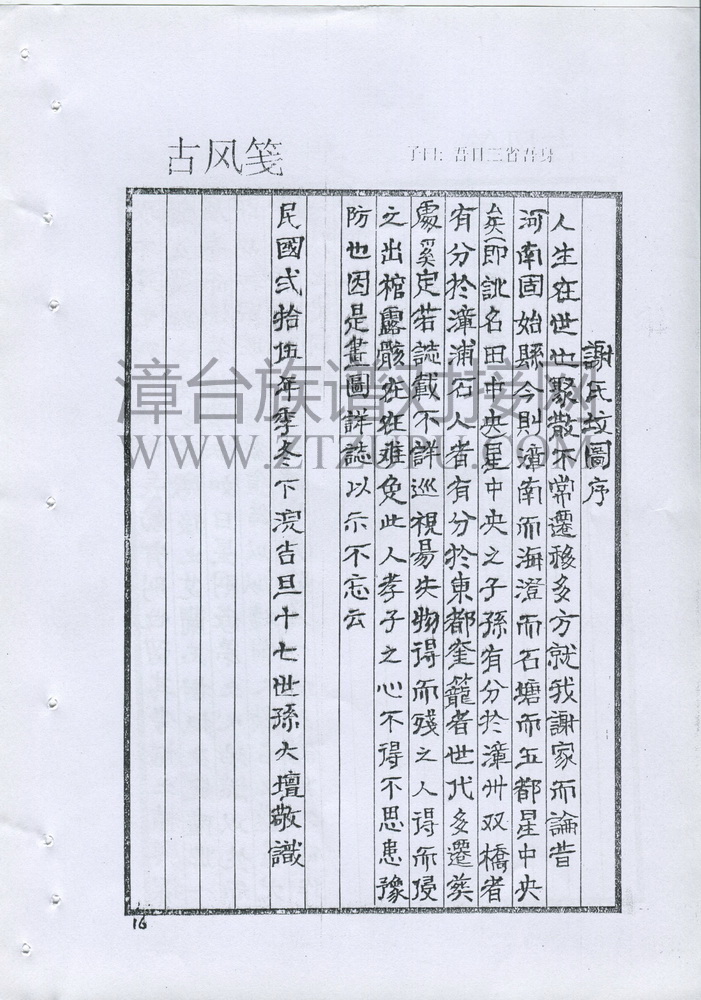 古风笺
子曰：吾日三省吾身
謝氏墳圖序
人生在世也聚散不常遷移多方就我謝家而論昔
河南固始縣今則漳南而海澄而石塘而五都星中央
矣即訛名田中央星中央之子孫有分於漳州双橋者
有分於漳浦石人者有分於東都奎籠者世代多遷葬
處奚定若誌載不詳巡視易失物得而殘之人得而侵
之出棺露骸在在难免此人孝子之心不得不思患豫
防也因是畫圖詳誌以示不忘云
民國弍拾伍年季冬下浣吉旦十七世孫大壇敬識
16
漳台族谱对接网
WWW.ZTZUPU.COM